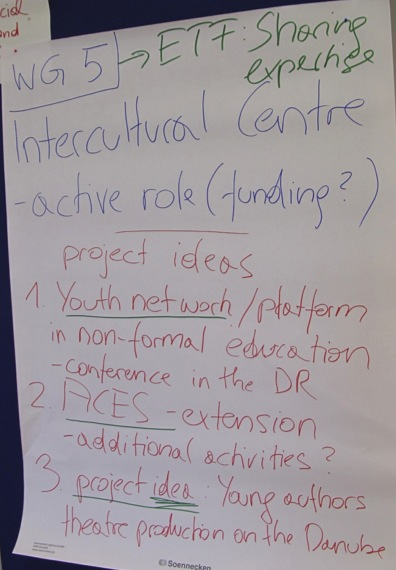 cial
and
WG 5 → ETF: Sharing
expertise
Intercultural Centre
- active role (funding?)
project ideas
1. Youth network/platform
in non-formal education
- conference in the DR
2. ACES - extension
- additional activities?
3. project idea: Young authors
theatre production on the Danube
Soennecken